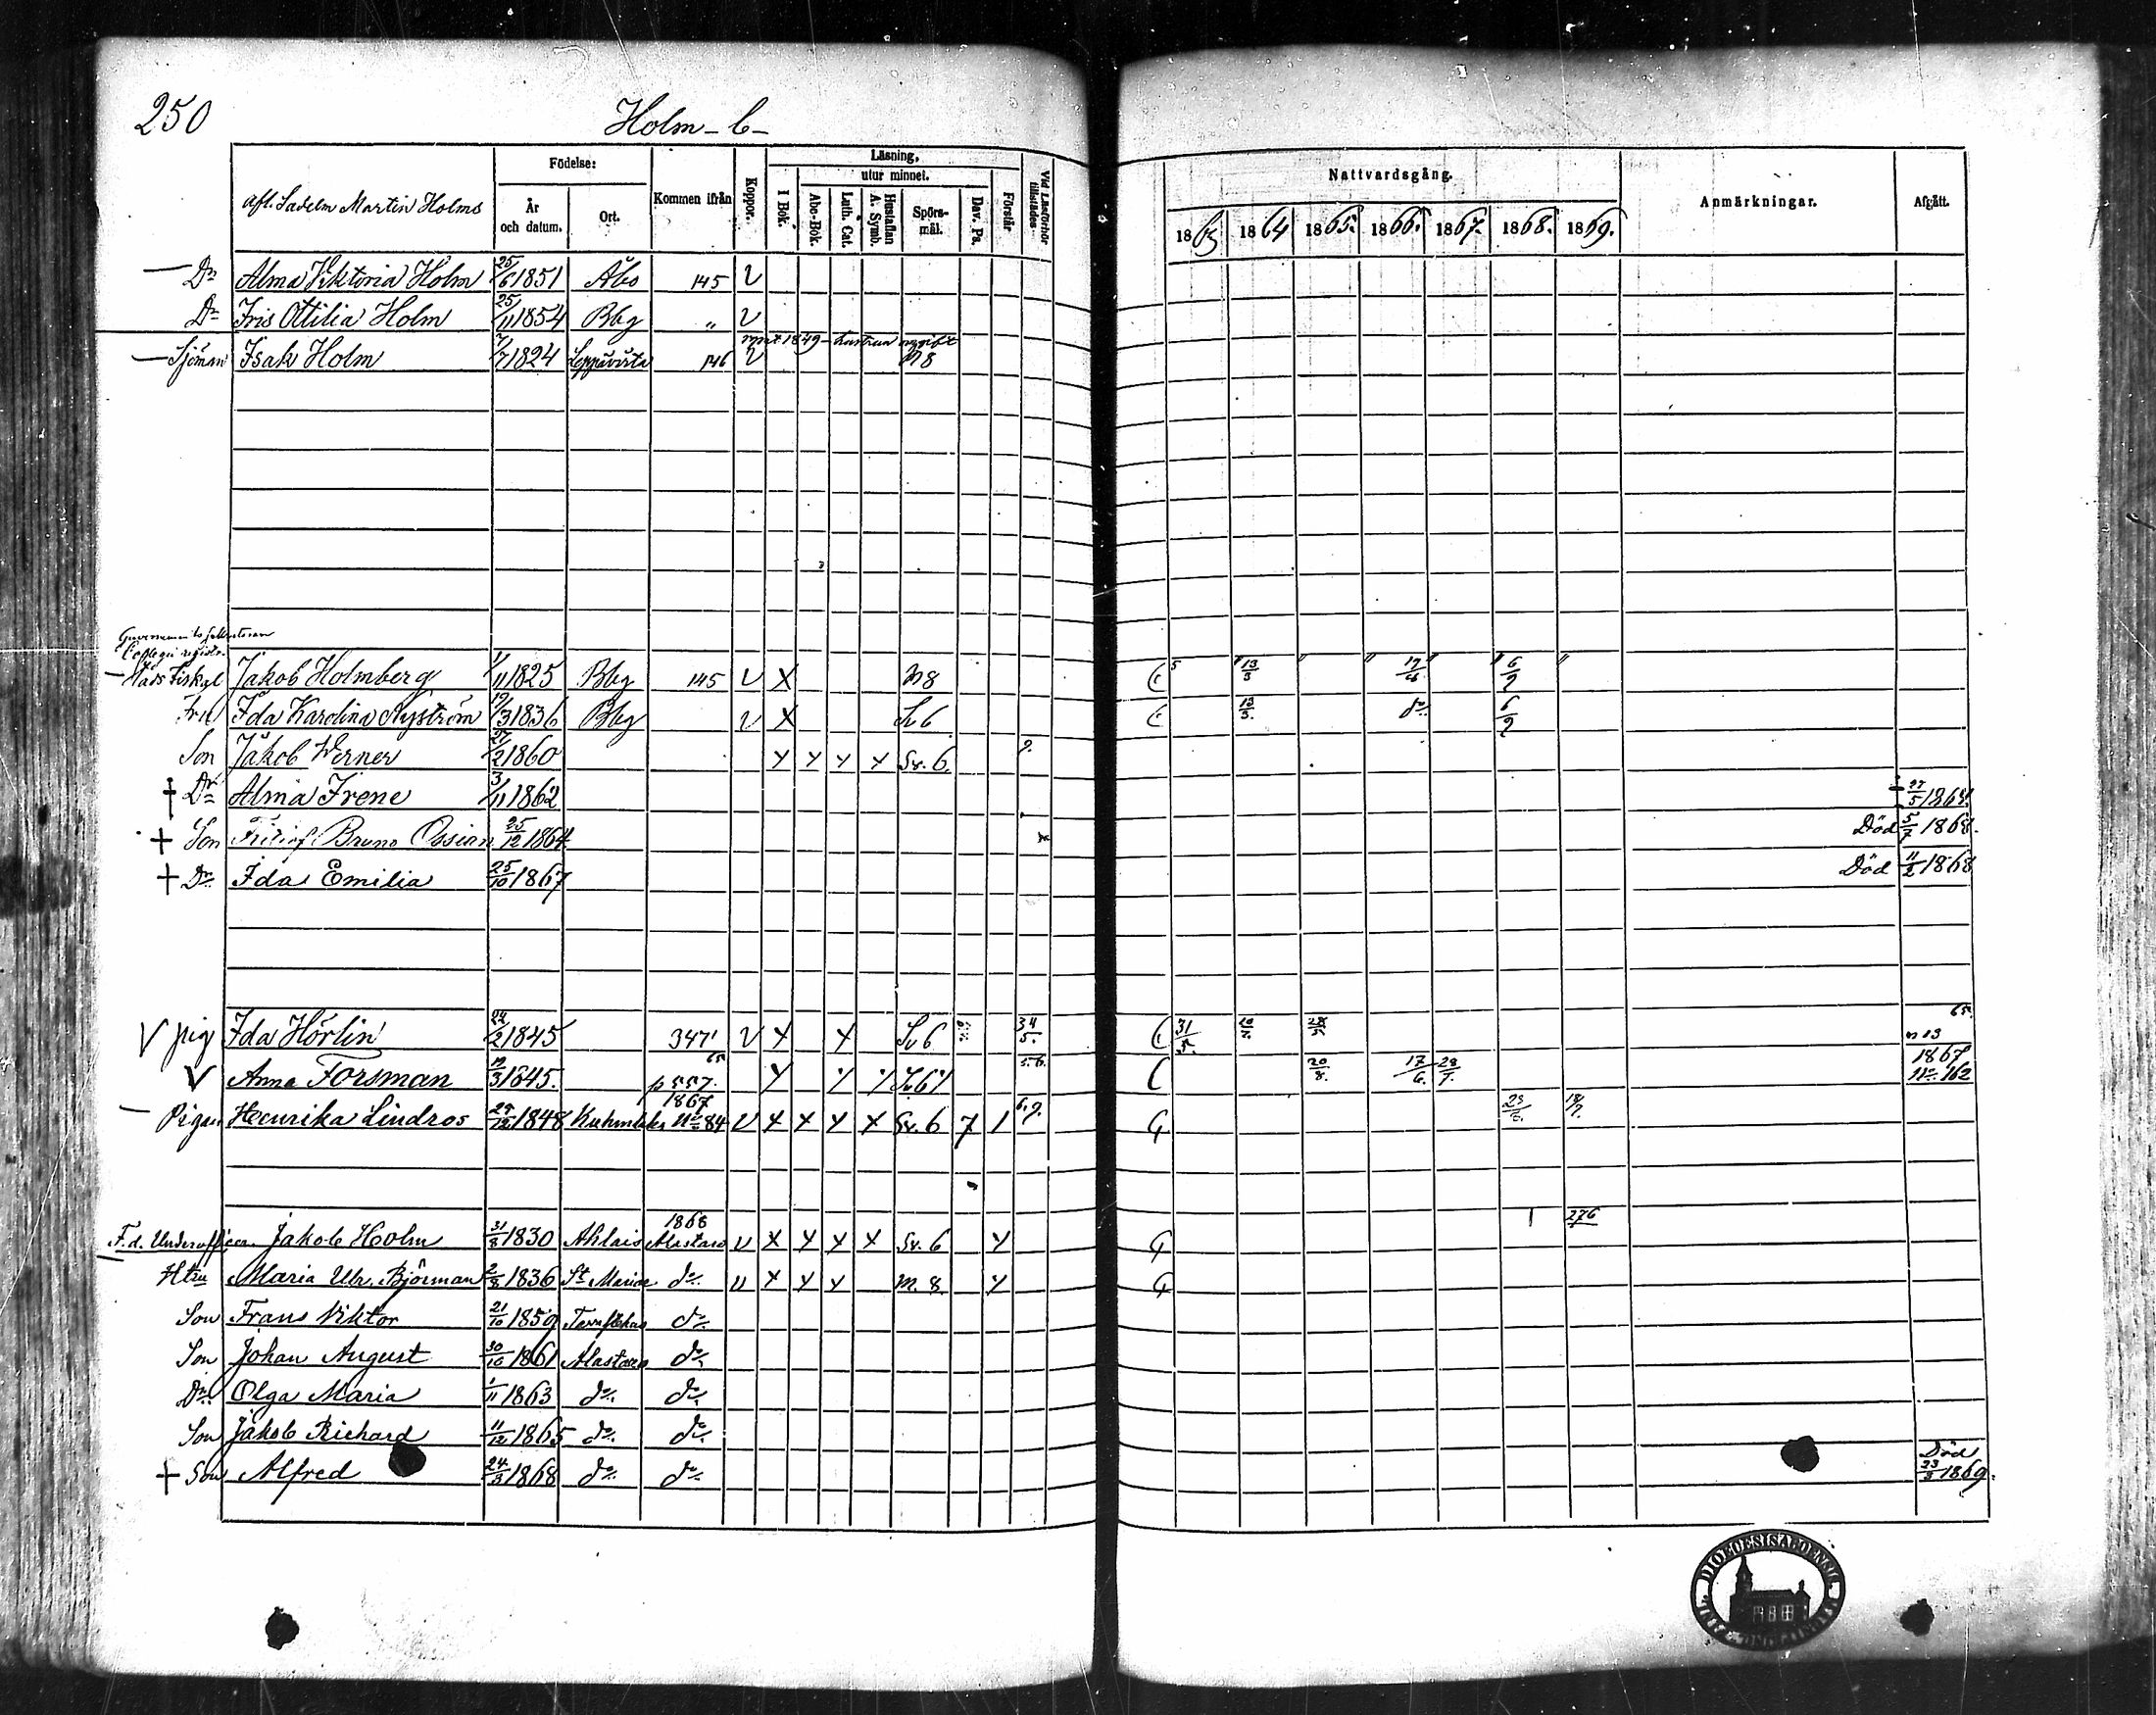 250
Holm - b -
Födelse:
Kommen ifrån
Koppor.
Läsning,
utur minnet.
I Bok.
Abc-Bok.
Luth. Cat.
Hustaflan A. Symb.
Spörsmål.
Dav. Ps.
Förstår
Vid Läsförhör tillstädes
Nattvardsgång.
Anmärkningar.
Afgått.
Afl. Sadelm Martin Holms
År och datum.
Ort.
1863 1864 1865. 1866. 1867. 1868. 1869.
Dr Alma Viktoria Holm 25/6 1851 Åbo 145 V
Dr Iris Ottilia Holm 25/11 1854 Bbg " V
1849 - hustrun
Sjöman Isak Holm 7/7 1824 Leppävirta 146 V m 8
Guvernements sekreteraren
Collegii registr.
Fiskal Jakob Holmberg 1/11 1825 Bbg 145 V X m 8 C 13/3 17/6 6/9
Fru Ida Karolina Nyström 19/3 1836 Bbg V X Sv 6 C 13/3. do 6/9
Son Jakob Werner 27/2 1860 Y Y Y Y Sv. 6. 9.
† Dr Alma Irene 3/11 1862 † 27/5 1864.
† Son Bruno Ossian 25/12 1864. Död 5/7 1868.
† Dr Ida Emilia 25/10 1867 Död 11/2 1868
65.
V pig Ida Hörlin 24/2 1845 347 V X Y Sv 6 3 4 5. C 31/5. n 13
V Anna Forsman 19/3 1845. p 557. 65 Y Y Y Sv 6 5.6. C 20/8. 17/6. 1867 No 162
Pigan Henrika Lindros 29/12 1848 Kuhmlaks 1867 No 84 V X X Y X Sv. 6 7 1 6.9. G 18/7.
F.d. Underofficer Jakob Holm 31/8 1830 Ahlais 1868 Alastaro V X Y Y X Sv. 6 Y G 1 276
Htru Maria Ulr. Björman 2/8 1836 St Mariae do V Y Y Y m. 8. Y G
Son Frans Viktor 21/10 1859 do
Son Johan August 30/10 1861 Alastaro do
Dr Olga Maria 1/11 1863 do do
Son Jakob Richard 11/12 1865 do do
† Son Alfred 24/3 1868 do do Död 23/3 1869.
DIOECESIS ABOENSIS